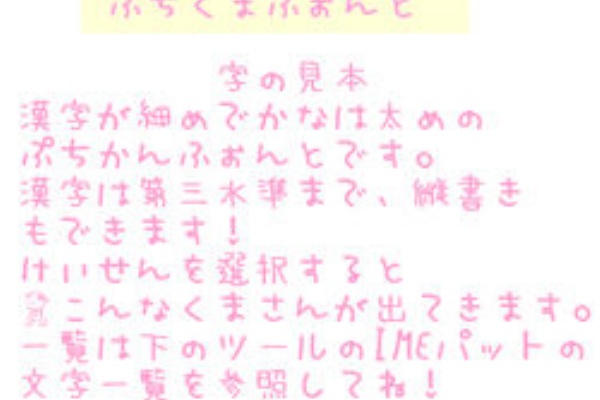 ぷちくまふぉんと
字の見本
漢字が細めでかなは太めの
ぷちかんふぉんとです。
漢字は第三水準まで、縦書き
もできます!
けいせんを選択すると
こんなくまさんが出てきます。
一覧は下のツールのIMEパットの
文字一覧を参照してね!